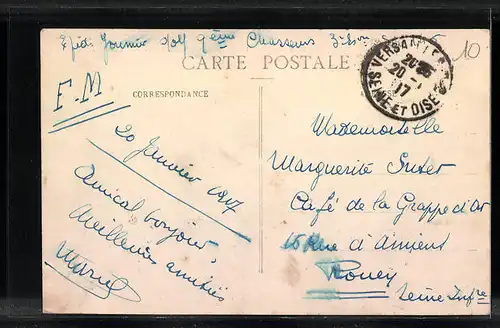 Expéd. Fournier 9ème Chasseurs
CARTE POSTALE
10
VERSAILLES
20 - 1
17
SEINE ET OISE
F.M
CORRESPONDANCE
20 Janvier 1917
Amical bonjour,
Meilleures amitiés
Marcel
Mademoiselle
Marguerite Suter
Café de la Grappe d'Or
15 Rue d'Amiens
Rouen
Seine Infre